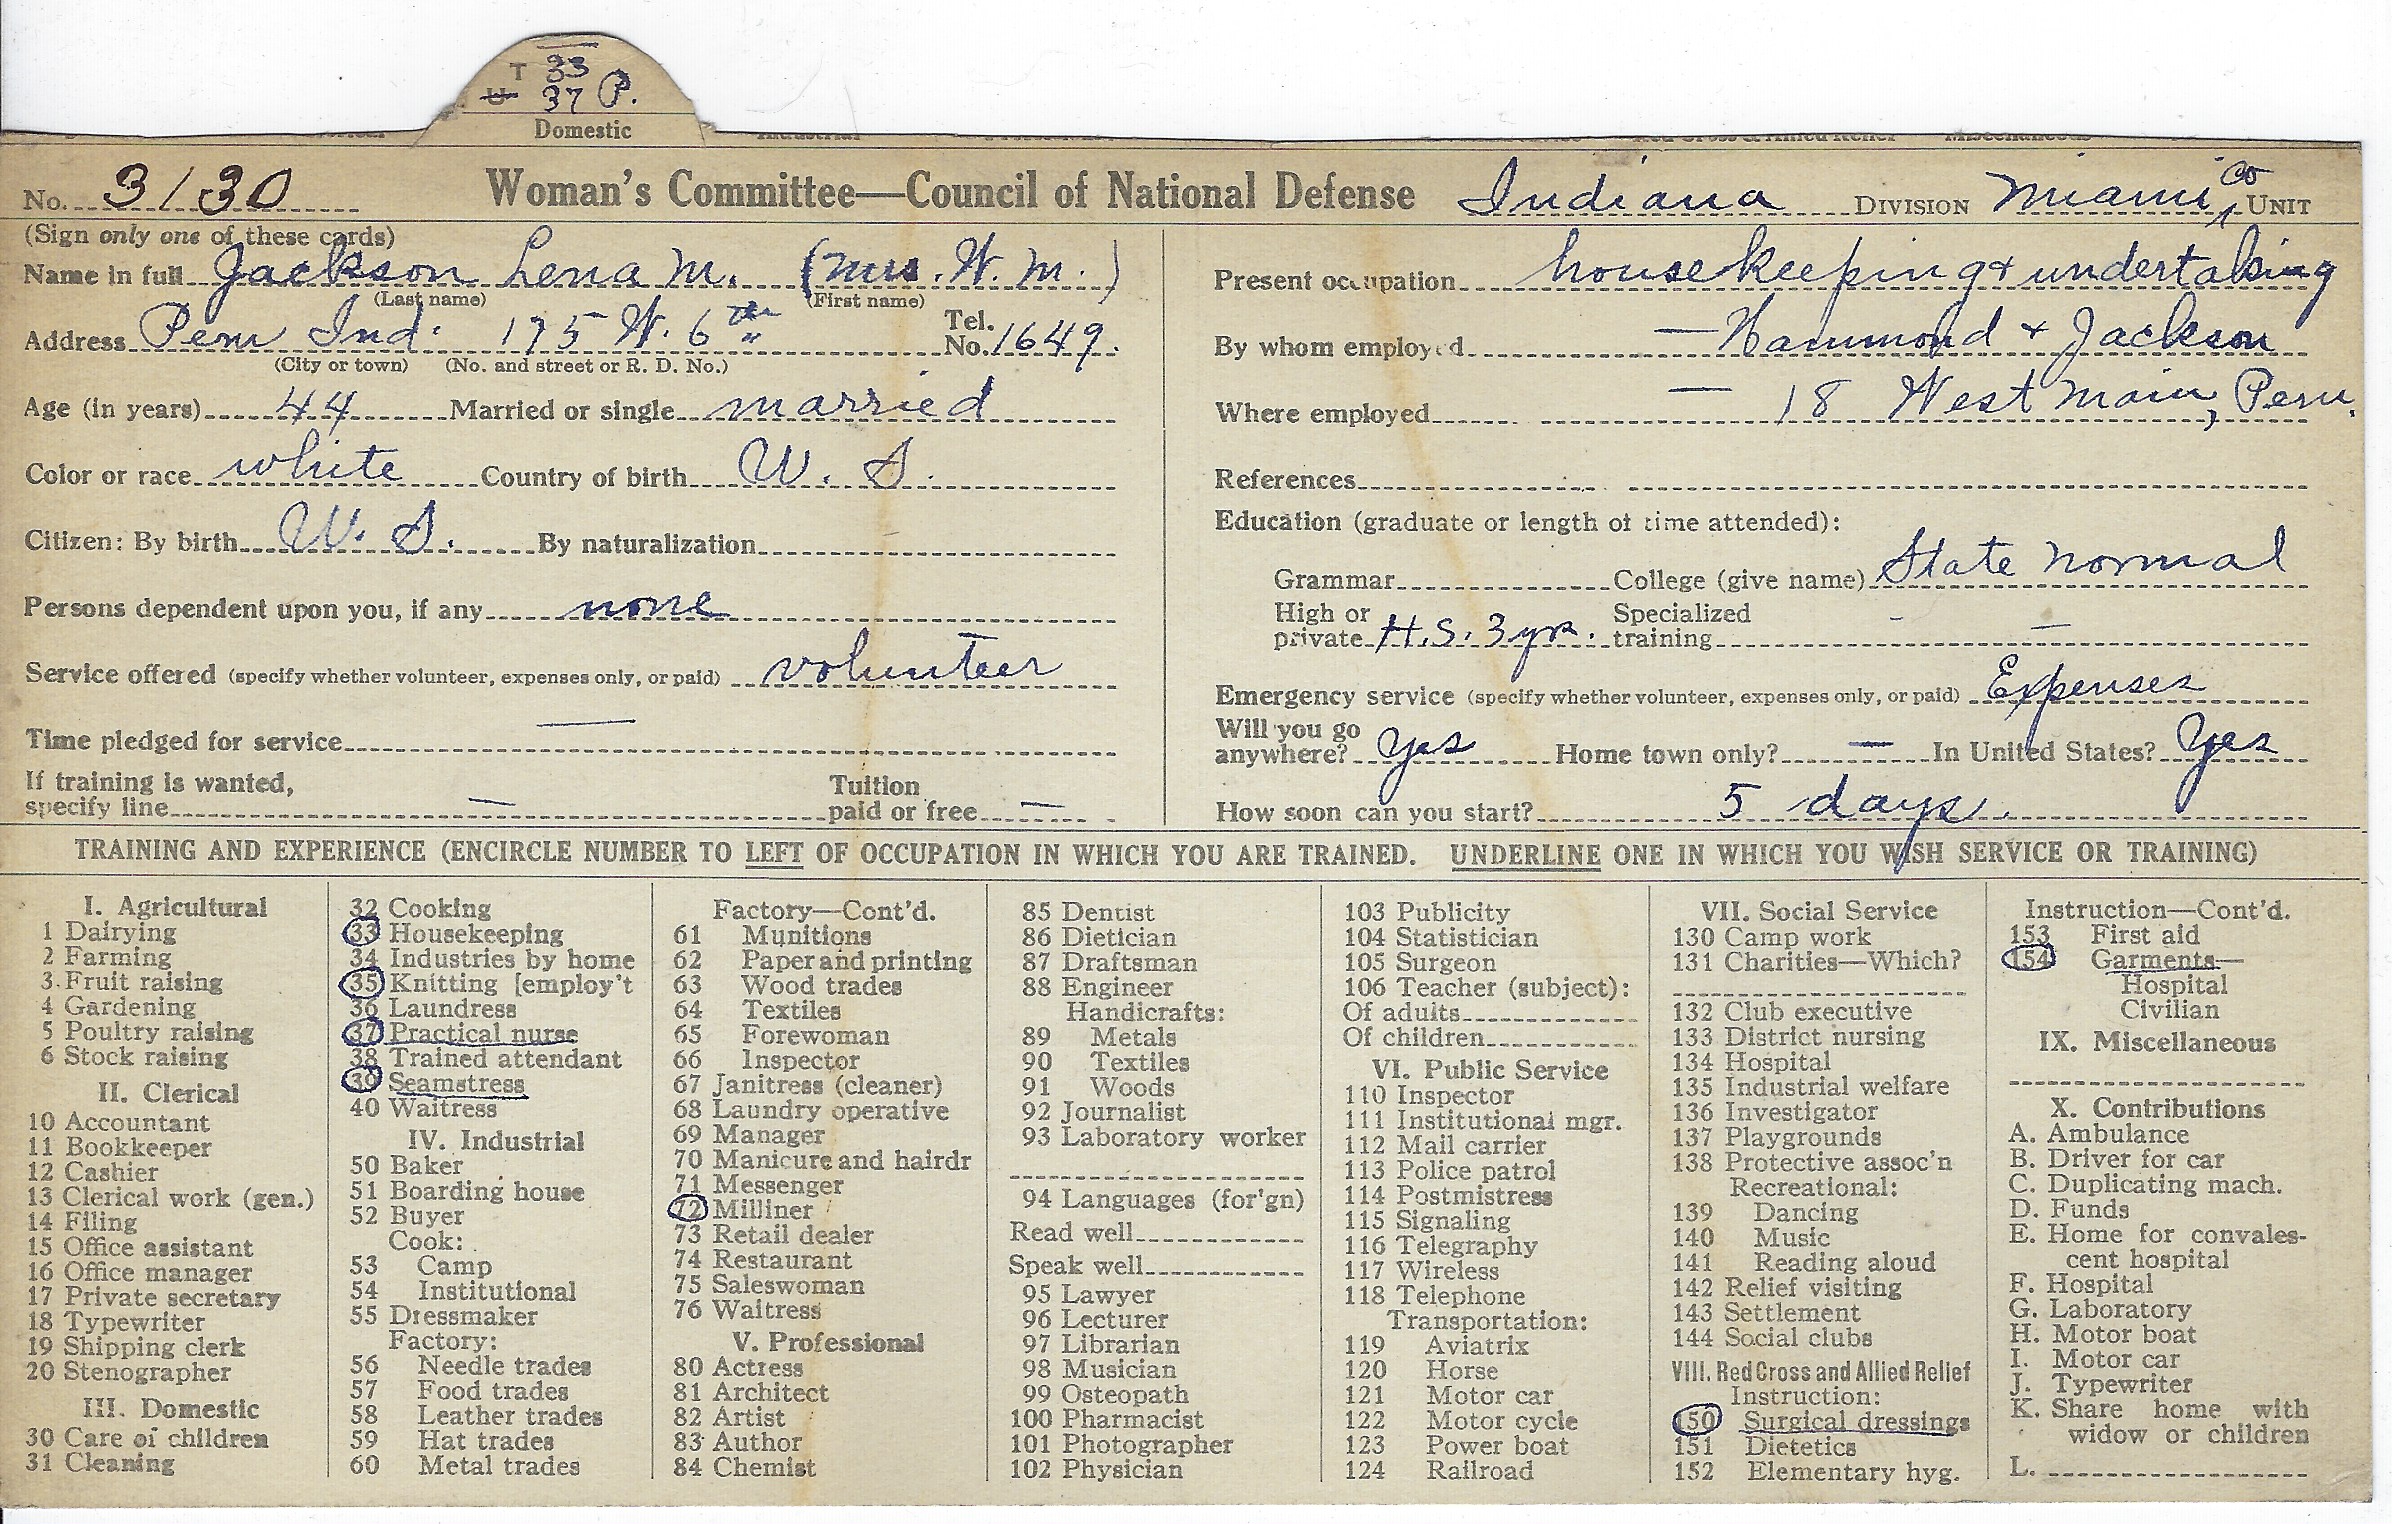 T 33
U 37 P.
Domestic
No. 3130 Woman's Committee—Council of National Defense Indiana DIVISION Miami Co UNIT
(Sign only one of these cards)
Name in full Jackson Lena M. (Mrs. W. M.)
(Last name) (First name)
Address Peru Ind. 175 W. 6th Tel. No. 1649.
(City or town) (No. and street or R. D. No.)
Age (in years) 44 Married or single married
Color or race white Country of birth U. S.
Citizen: By birth U. S. By naturalization
Persons dependent upon you, if any none
Service offered (specify whether volunteer, expenses only, or paid) volunteer
Time pledged for service —
If training is wanted,
specify line — Tuition paid or free —
Present occupation housekeeping & undertaking
By whom employed — Hammond & Jackson
Where employed — 18 West Main, Peru.
References
Education (graduate or length of time attended):
Grammar College (give name) State Normal
High or private H.S. 3 yr. Specialized training —
Emergency service (specify whether volunteer, expenses only, or paid) Expenses
Will you go anywhere? Yes Home town only? — In United States? Yes
How soon can you start? 5 days.
TRAINING AND EXPERIENCE (ENCIRCLE NUMBER TO LEFT OF OCCUPATION IN WHICH YOU ARE TRAINED. UNDERLINE ONE IN WHICH YOU WISH SERVICE OR TRAINING)
I. Agricultural
1 Dairying
2 Farming
3 Fruit raising
4 Gardening
5 Poultry raising
6 Stock raising
II. Clerical
10 Accountant
11 Bookkeeper
12 Cashier
13 Clerical work (gen.)
14 Filing
15 Office assistant
16 Office manager
17 Private secretary
18 Typewriter
19 Shipping clerk
20 Stenographer
III. Domestic
30 Care of children
31 Cleaning
32 Cooking
33 Housekeeping
34 Industries by home
35 Knitting [employ't
36 Laundress
37 Practical nurse
38 Trained attendant
39 Seamstress
40 Waitress
IV. Industrial
50 Baker
51 Boarding house
52 Buyer
Cook:
53 Camp
54 Institutional
55 Dressmaker
Factory:
56 Needle trades
57 Food trades
58 Leather trades
59 Hat trades
60 Metal trades
Factory—Cont'd.
61 Munitions
62 Paper and printing
63 Wood trades
64 Textiles
65 Forewoman
66 Inspector
67 Janitress (cleaner)
68 Laundry operative
69 Manager
70 Manicure and hairdr
71 Messenger
72 Milliner
73 Retail dealer
74 Restaurant
75 Saleswoman
76 Waitress
V. Professional
80 Actress
81 Architect
82 Artist
83 Author
84 Chemist
85 Dentist
86 Dietician
87 Draftsman
88 Engineer
Handicrafts:
89 Metals
90 Textiles
91 Woods
92 Journalist
93 Laboratory worker
94 Languages (for'gn)
Read well
Speak well
95 Lawyer
96 Lecturer
97 Librarian
98 Musician
99 Osteopath
100 Pharmacist
101 Photographer
102 Physician
103 Publicity
104 Statistician
105 Surgeon
106 Teacher (subject):
Of adults
Of children
VI. Public Service
110 Inspector
111 Institutional mgr.
112 Mail carrier
113 Police patrol
114 Postmistress
115 Signaling
116 Telegraphy
117 Wireless
118 Telephone
Transportation:
119 Aviatrix
120 Horse
121 Motor car
122 Motor cycle
123 Power boat
124 Railroad
VII. Social Service
130 Camp work
131 Charities—Which?
132 Club executive
133 District nursing
134 Hospital
135 Industrial welfare
136 Investigator
137 Playgrounds
138 Protective assoc'n
Recreational:
139 Dancing
140 Music
141 Reading aloud
142 Relief visiting
143 Settlement
144 Social clubs
VIII. Red Cross and Allied Relief
Instruction:
150 Surgical dressings
151 Dietetics
152 Elementary hyg.
Instruction—Cont'd.
153 First aid
154 Garments—
Hospital
Civilian
IX. Miscellaneous
X. Contributions
A. Ambulance
B. Driver for car
C. Duplicating mach.
D. Funds
E. Home for convales-
cent hospital
F. Hospital
G. Laboratory
H. Motor boat
I. Motor car
J. Typewriter
K. Share home with
widow or children
L.